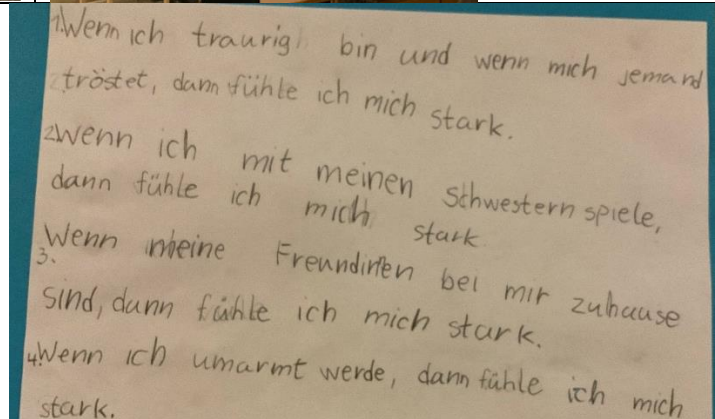 1. Wenn ich traurig bin und wenn mich jemand
tröstet, dann fühle ich mich stark.
2. Wenn ich mit meinen Schwestern spiele,
dann fühle ich mich stark.
3. Wenn meine Freundinnen bei mir zuhause
sind, dann fühle ich mich stark.
4. Wenn ich umarmt werde, dann fühle ich mich
stark.